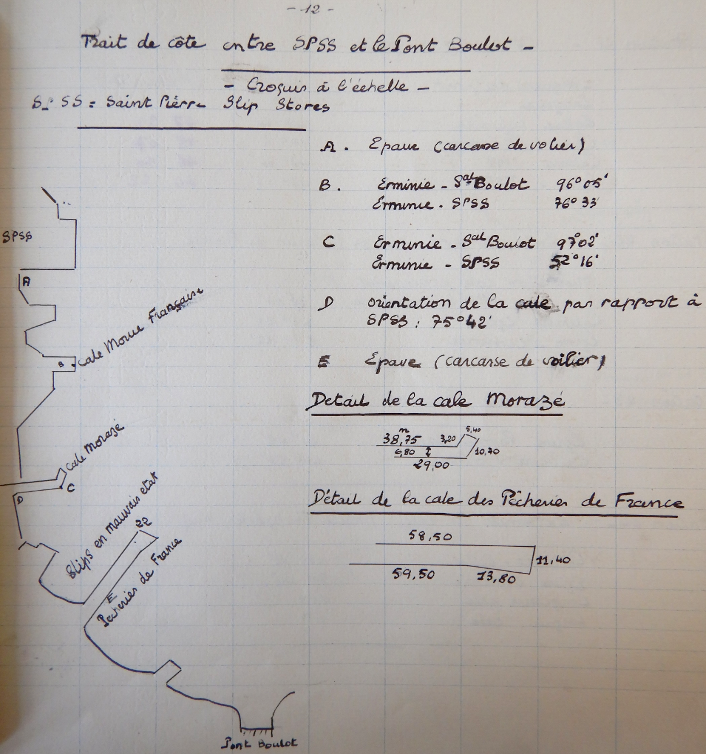 - 12 -
Trait de côte entre SPSS et le Pont Boulot -
- Croquis à l'échelle -
SPSS = Saint Pierre Slip Stores
A. Epave (carcasse de voilier)
B. Erminie - Sal Boulot 96°05'
Erminie - SPSS 76°33'
C Erminie - Sal Boulot 97°02'
Erminie - SPSS 52°16'
D orientation de la cale par rapport à
SPSS : 75°42'
E Epave (carcasse de voilier)
Détail de la cale Morazé
38,75 m 3,20 5,40
6,80 2 10,70
29,00
Détail de la cale des Pêcheries de France
58,50
11,40
59,50 13,80
SPSS
A
B Cale Morue Française
Cale Morazé
C
D
Slips en mauvais état
22
E
Pêcheries de France
Pont Boulot